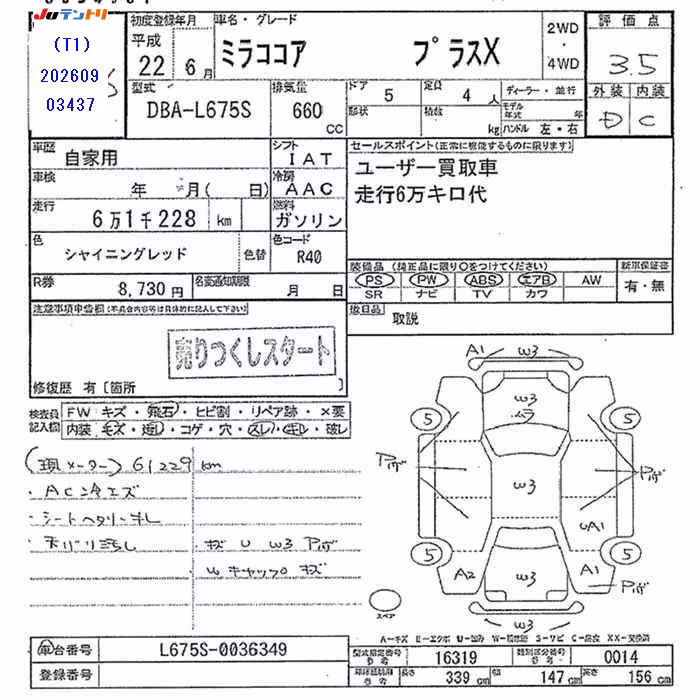 Juテントリ
(T1)
202609
03437
初度登録年月
平成
22年 6月
車名・グレード
ミラココア プラスX
2WD
・
4WD
評価点
3.5
外装 内装
D C
型式
DBA-L675S
排気量
660
CC
ドア
5
定員
4人
形状
積数
kg
ディーラー・並行
モデル年式
年
ハンドル 左・右
車歴
自家用
シフト
IAT
車検
年 月( 日)
冷房
AAC
走行
6万1千228 km
燃料
ガソリン
色
シャイニングレッド
色替
色コード
R40
R券
8,730円
名変通知期限
月 日
セールスポイント(正常に機能するものに限ります)
ユーザー買取車
走行6万キロ代
装備品 (純正品に限り○をつけてください)
PS PW ABS エアB AW
SR ナビ TV カワ
新車保証書
有・無
後日品
取説
注意事項申告欄(不具合内容等は具体的に記入して下さい)
売りつくしスタート
修復歴 有〔箇所 〕
検査員記入欄
FW キズ・飛石・ヒビ割・リペア跡・×要
内装 モズ・コゲ・穴・スレ・破レ
(現メーター) 61229 km
・AC冷エズ
・シートヘタリ
・キズ U W3
キャップ キズ
A1 W3
W3
5 5
W3
UA1
5 5
A2 W3 A1
W3
スペア
A-キズ E-エクボ U-凹み W-補修跡 S-サビ C-腐食 XX-交換済
車台番号
L675S-0036349
登録番号
型式指定番号
参考
16319
類別区分番号
参考
0014
長さ 339 cm
幅 147 cm
高さ 156 cm